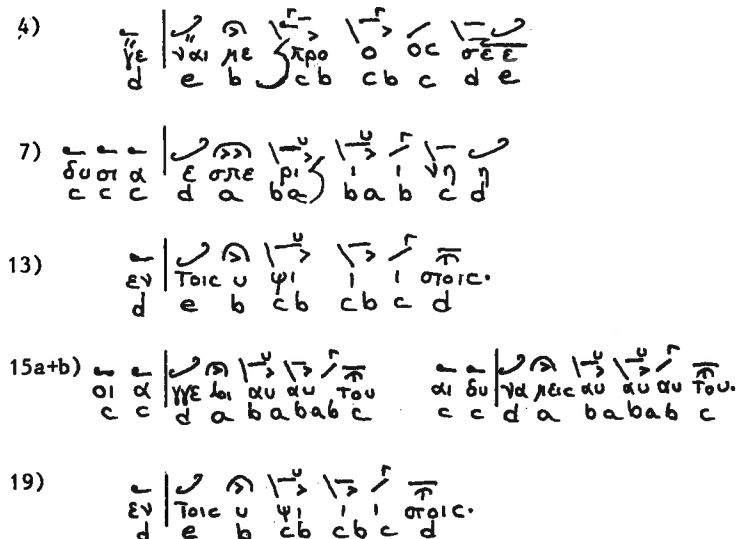 4) γε | ναι με προ ο ος σε ε
d e b cb cb c d e
7) δυ σι α | ε σπε ρι ι ι νη η
c c c d a ba ba b c d
13) εν | τοις υ ψι ι ι στοις.
d e b cb cb c d
15a+b) οι α | γγε λοι αυ αυ του αι δυ | να μεις αυ αυ αυ του.
c c d a ba bab c c c d a ba bab c
19) εν | τοις υ ψι ι ι στοις.
d e b cb cb c d